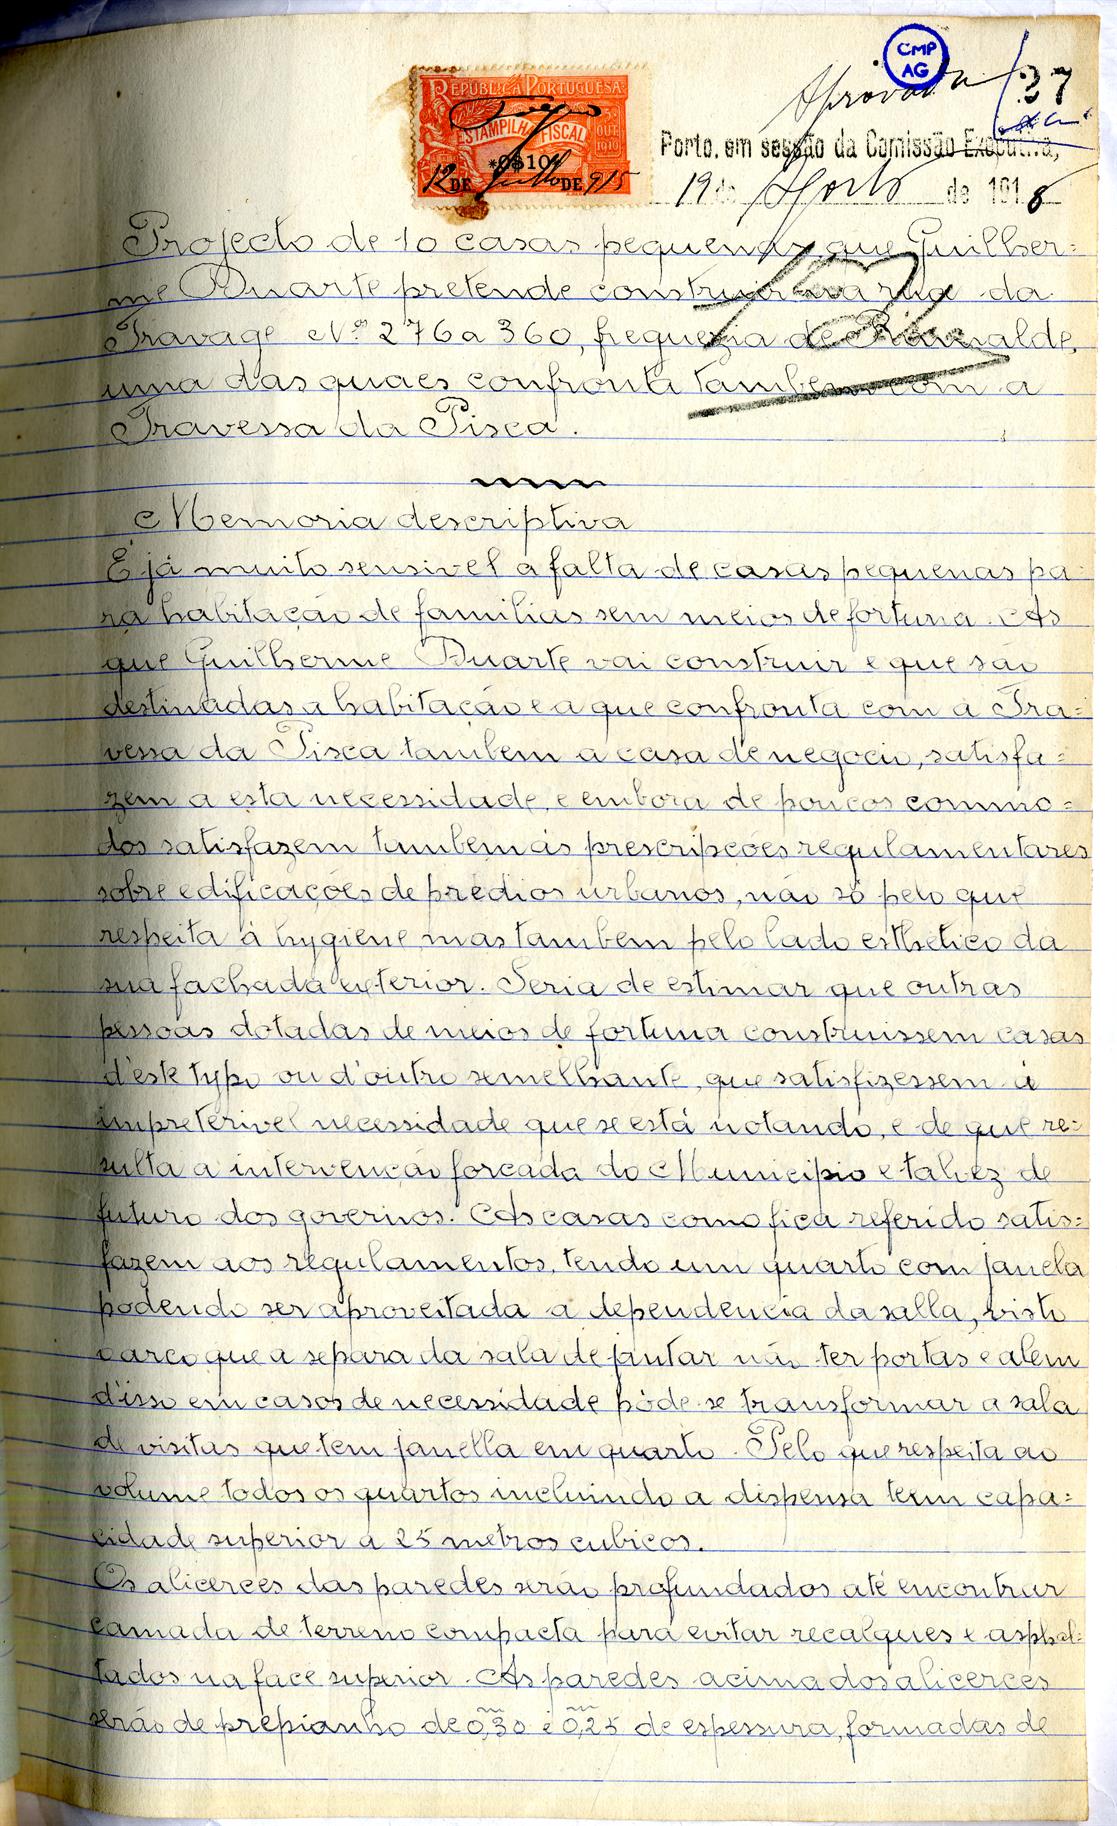 CMP
AG
Aprovada
37
REPUBLICA PORTUGUESA
5 DE OUT. 1910
ESTAMPILHA FISCAL
*0$10*
12 DE Julho DE 915
Porto, em sessão da Comissão Executiva,
19 de Agosto de 1918
Projecto de 10 casas pequenas que Guilher=
me Duarte pretende construir na rua da
Travage Nos 276 a 360, freguezia de Ramalde,
uma das quaes confronta tambem com a
Travessa da Pisca.
Memoria descriptiva
É já muito sensivel a falta de casas pequenas pa=
ra habitação de familias sem meios de fortuna. As
que Guilherme Duarte vai construir e que são
destinadas a habitação e a que confronta com a Tra=
vessa da Pisca tambem a casa de negocio, satisfa=
zem a esta necessidade, e embora de poucos commo=
dos satisfazem tambem ás prescripções regulamentares
sobre edificações de prédios urbanos, não só pelo que
respeita á hygiene mas tambem pelo lado esthetico da
sua fachada exterior. Seria de estimar que outras
pessoas dotadas de meios de fortuna construissem casas
d'este typo ou d'outro semelhante, que satisfizessem á
impreterivel necessidade que se está notando, e de que re=
sulta a intervenção forcada do Municipio e talvez de
futuro dos governos. As casas como fica referido satis=
fazem aos regulamentos, tendo um quarto com janela
podendo ser aproveitada a dependencia da salla, visto
o arco que a separa da sala de jantar não ter portas e alem
d'isso em casos de necessidade póde-se transformar a sala
de visitas que tem janella em quarto. Pelo que respeita ao
volume todos os quartos incluindo a dispensa tem capa=
cidade superior a 25 metros cubicos.
Os alicerces das paredes serão profundados até encontrar
camada de terreno compacta para evitar recalques e asphal=
tados na face superior. As paredes acima dos alicerces
serão de prepianho de 0,30 e 0,25 de espessura, formadas de